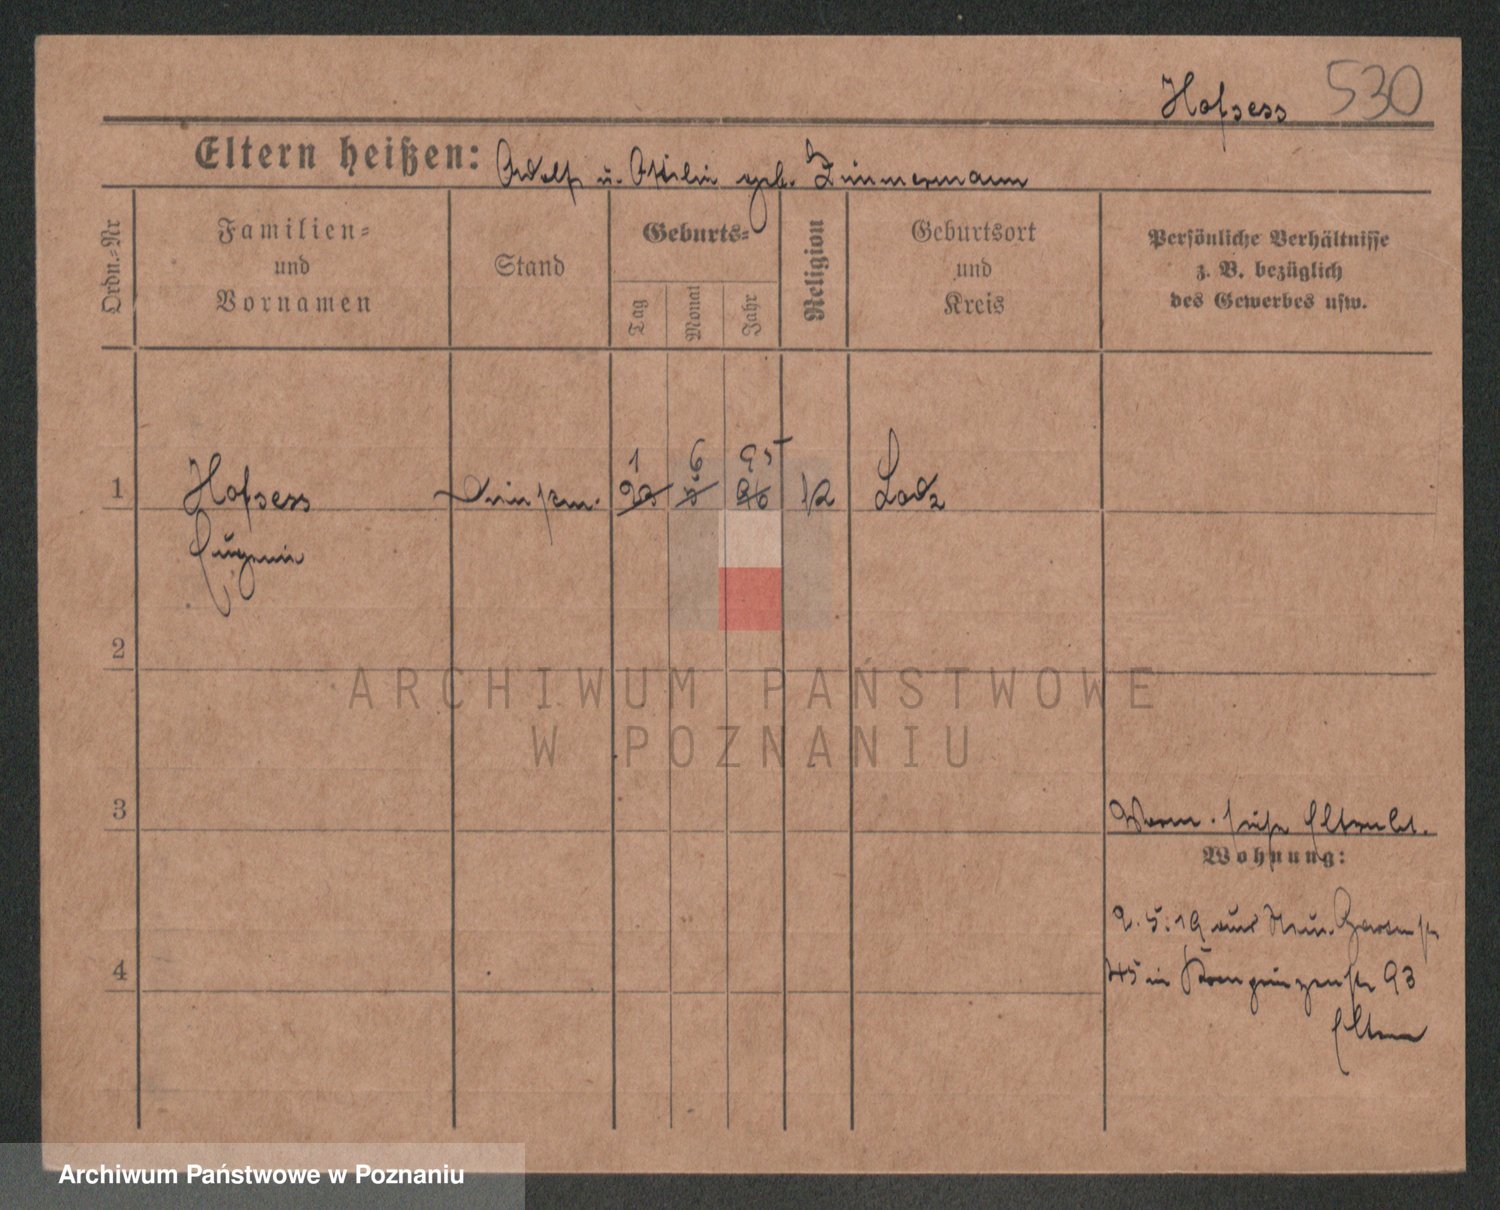 Hofsess 530
Eltern heißen: Adolf u. Ottilie geb. Zimmermann
Ordn.-Nr
Familien-
und
Vornamen
Stand
Geburts-
Tag
Monat
Jahr
Religion
Geburtsort
und
Kreis
Persönliche Verhältnisse
z. B. bezüglich
des Gewerbes usw.
1 6 95
1 Hofsess Lodz
Eugenie
2
3
4
Wohnung:
2.5.19 aus Neu. Gartenstr
45 in Kronprinzenstr 93
Eltern
ARCHIWUM PAŃSTWOWE
W POZNANIU
Archiwum Państwowe w Poznaniu